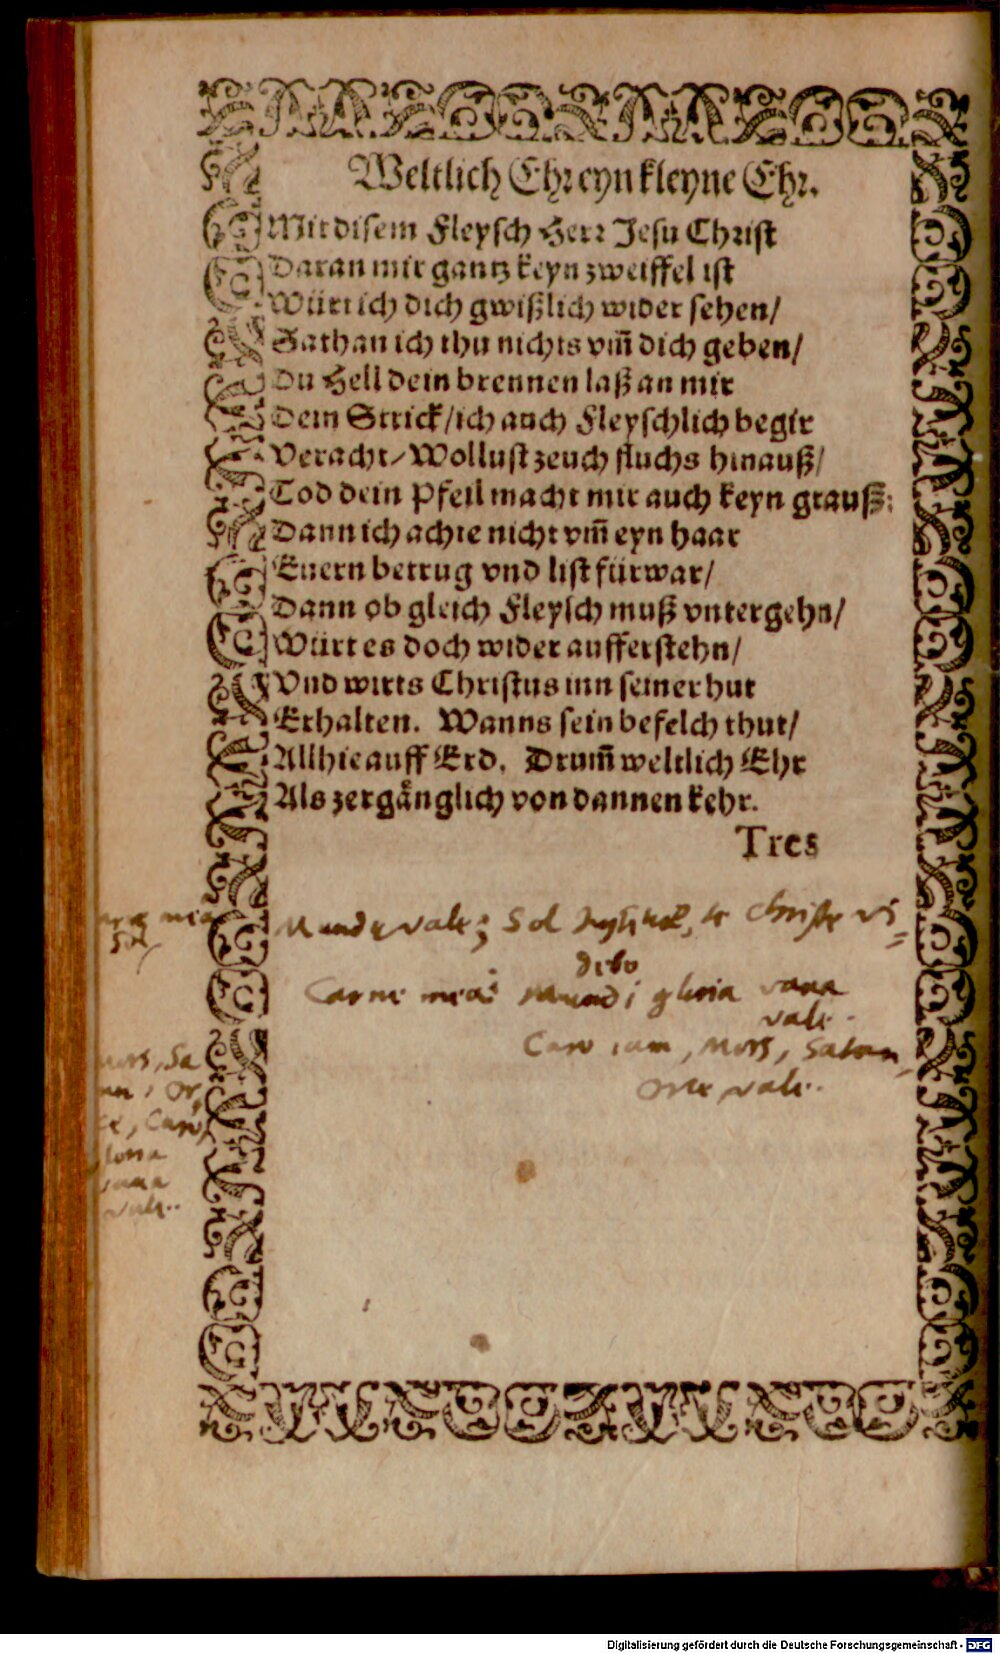 Weltlich Ehr eyn kleyne Ehr.
Mit disem Fleysch Herr Jesu Christ
Daran mir gantz keyn zweiffel ist
Würt ich dich gwißlich wider sehen/
Sathan ich thu nichts vm̃ dich geben/
Du Hell dein brennen laß an mir
Dein Strick/ich auch Fleyschlich begir
Veracht/Wollust zeuch fluchs hinauß/
Tod dein Pfeil macht mir auch keyn grauß:
Dann ich achte nicht vm̃ eyn haar
Euern betrug vnd list fürwar/
Dann ob gleich Fleysch muß vntergehn/
Würt es doch wider aufferstehn/
Vnd wirts Christus inn seiner hut
Erhalten. Wanns sein befelch thut/
Allhie auff Erd. Drum̃ weltlich Ehr
Als zergånglich von dannen kehr.
Tres
mea
Sol
vale; Sol te Christe vi-
debo
Carne mea: Mundi gloria vana
vale.
Caro iam, Mors, Satan,
Orce vale.
Mors, Sa
an, Or,
ce, Caro,
loria
vana
vale..
Digitalisierung gefördert durch die Deutsche Forschungsgemeinschaft - DFG